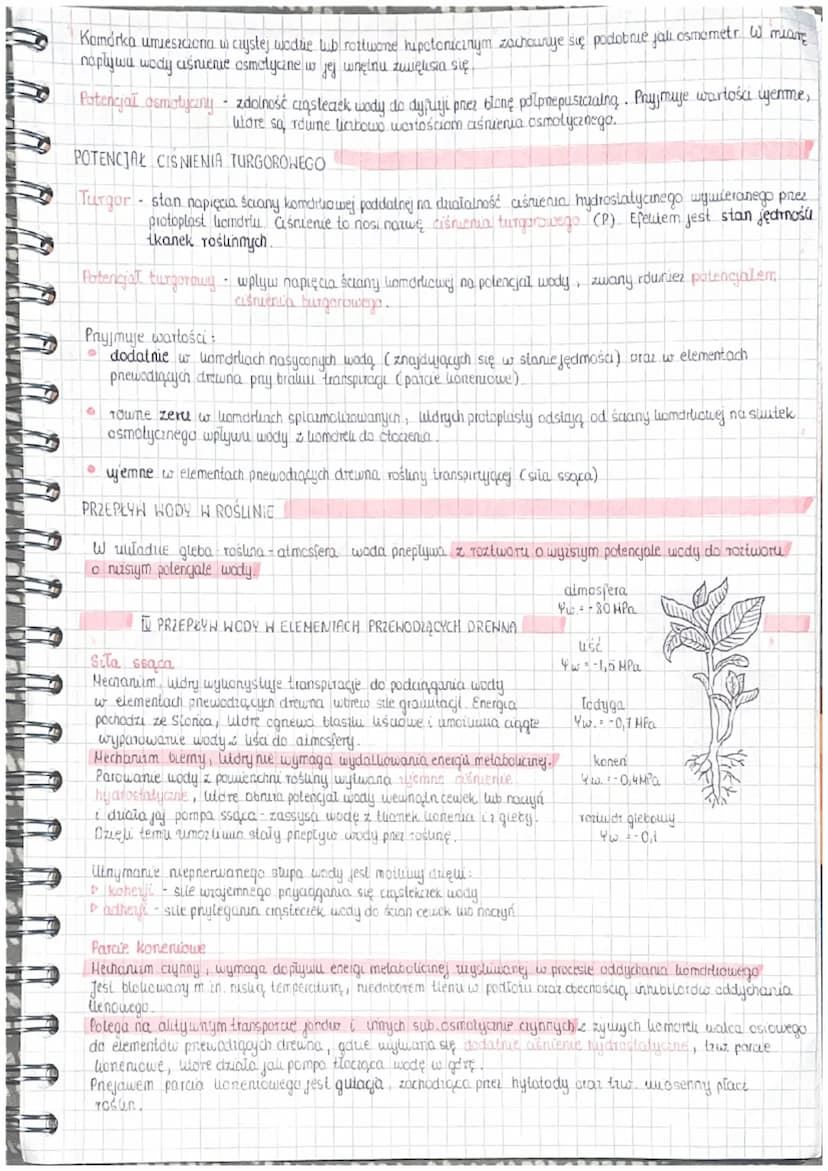 Komórka umieszczona w czystej wodzie lub roztworze hipotonicznym zachowuje się podobnie jak osmometr. W miarę
napływu wody ciśnienie osmotyczne w jej wnętrzu zwiększa się.
Potencjał osmotyczny - zdolność cząsteczek wody do dyfuzji przez błonę półprzepuszczalną. Przyjmuje wartości ujemne,
które są równe liczbowo wartościom ciśnienia osmotycznego.
POTENCJAŁ CIŚNIENIA TURGOROWEGO
Turgor - stan napięcia ściany komórkowej poddatnej na działalność ciśnienia hydrostatycznego wywieranego przez
protoplast komórki. Ciśnienie to nosi nazwę ciśnienia turgorowego (P). Efektem jest stan jędrności
tkanek roślinnych.
Potencjał turgorowy - wpływ napięcia ściany komórkowej na potencjał wody, zwany również potencjałem
ciśnienia turgorowego.
Przyjmuje wartości:
• dodatnie w komórkach nasyconych wodą (znajdujących się w stanie jędrności) oraz w elementach
przewodzących drewna przy braku transpiracji (parcie korzeniowe)
• równe zeru w komórkach splazmolizowanych, których protoplasty odstają od ściany komórkowej na skutek
osmotycznego wpływu wody z komórek do otoczenia.
• ujemne w elementach przewodzących drewna rośliny transpirującej (siła ssąca)
PRZEPŁYW WODY W ROŚLINIE
W układzie gleba - roślina - atmosfera woda przepływa z roztworu o wyższym potencjale wody do roztworu
o niższym potencjale wody.
atmosfera
Ψw = -80 MPa
IV PRZEPŁYW WODY W ELEMENTACH PRZEWODZĄCYCH DREWNA
liść
Ψw = -1,5 MPa
Siła ssąca
Mechanizm, który wykorzystuje transpirację do podciągania wody
w elementach przewodzących drewna wbrew sile grawitacji. Energia
pochodzi ze Słońca, które ogrzewa blaszki liściowe i umożliwia ciągłe
wyparowanie wody z liści do atmosfery.
łodyga
Ψw. = -0,7 MPa
Mechanizm bierny, który nie wymaga wydatkowania energii metabolicznej.
Parowanie wody z powierzchni rośliny wytwarza ujemne ciśnienie
hydrostatyczne, które obniża potencjał wody wewnątrz cewek lub naczyń
i działa jaj pompa ssąca - zassysa wodę z tkanek korzenia i z gleby.
Dzięki temu umożliwia stały przepływ wody przez roślinę.
korzeń
Ψw. = -0,4 MPa
roztwór glebowy
Ψw = -0,1
Utrzymanie nieprzerwanego słupa wody jest możliwy dzięki:
▷ kohezji - sile wzajemnego przyciągania się cząsteczek wody
▷ adhezji - sile przylegania cząsteczek wody do ścian cewek lub naczyń
Parcie korzeniowe
Mechanizm czynny, wymaga dopływu energii metabolicznej uzyskiwanej w procesie oddychania komórkowego
Jest blokowany m.in. niską temperaturą, niedoborem tlenu w podłożu oraz obecnością inhibitorów oddychania
tlenowego.
Polega na aktywnym transporcie jonów i innych sub. osmotycznie czynnych z żywych komórek walca osiowego
do elementów przewodzących drewna, gdzie wytwarza się dodatnie ciśnienie hydrostatyczne, tzw. parcie
korzeniowe, które działa jak pompa tłocząca wodę w górę.
Przejawem parcia korzeniowego jest gutacja, zachodząca przez hydatody oraz tzw. wiosenny płacz
roślin.